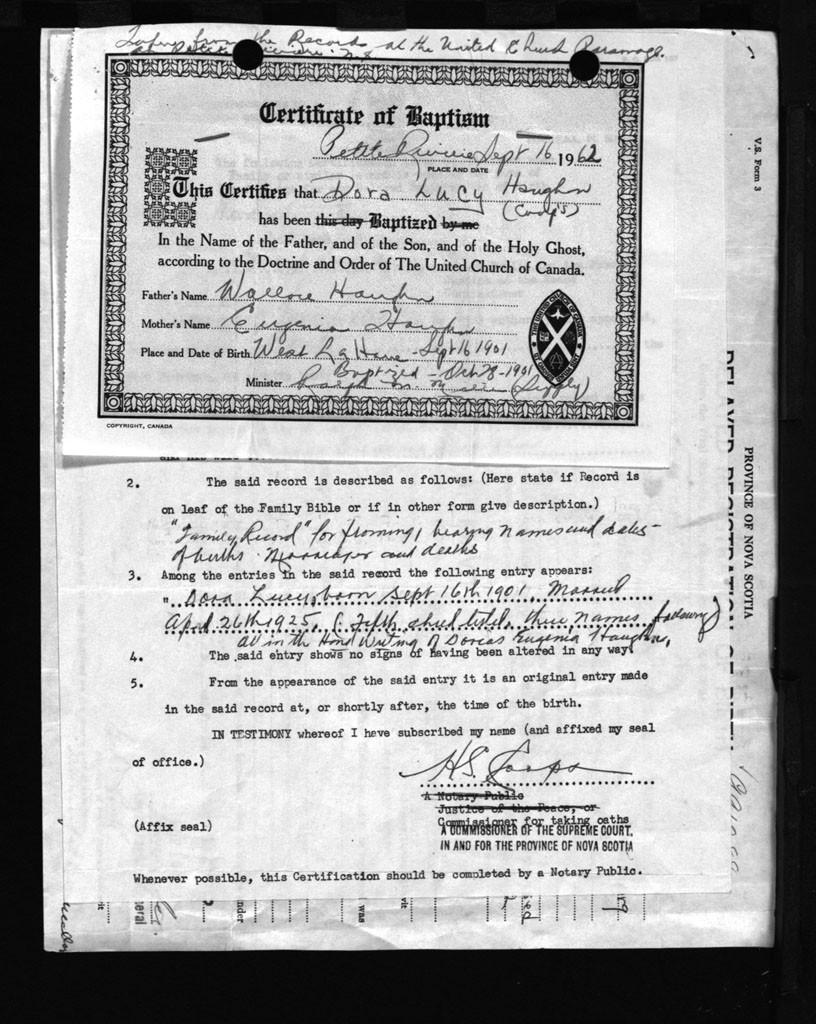 Taken from the Records at the United Church Parsonage.
at Petite Riviere N.S.
Certificate of Baptism
Petite Riviere Sept 16 1962
PLACE AND DATE
This Certifies that Dora Lucy Haughn
(Corps)
has been this day Baptized by me
In the Name of the Father, and of the Son, and of the Holy Ghost,
according to the Doctrine and Order of The United Church of Canada.
Father's Name Wallace Haughn
Mother's Name Eugenia Haughn
Place and Date of Birth West La Have - Sept 16 1901
Baptized - Oct 28 - 1901
Minister Ralph M.
COPYRIGHT, CANADA
2. The said record is described as follows: (Here state if Record is
on leaf of the Family Bible or if in other form give description.)
"Family Record" for framing, bearing names and dates
of births Marriages and deaths
3. Among the entries in the said record the following entry appears:
" Dora Lucy, born Sept 16th 1901, Married
April 26th 1925, (Fifth child listed, three names following)
all in the Hand Writing of Dorcas Eugenia Haughn,
4. The said entry shows no signs of having been altered in any way.
5. From the appearance of the said entry it is an original entry made
in the said record at, or shortly after, the time of the birth.
IN TESTIMONY whereof I have subscribed my name (and affixed my seal
of office.)
H.S. Corps
A Notary Public
Justice of the Peace, or
Commissioner for taking oaths
(Affix seal)
A COMMISSIONER OF THE SUPREME COURT,
IN AND FOR THE PROVINCE OF NOVA SCOTIA
Whenever possible, this Certification should be completed by a Notary Public.
V.S. Form 3
PROVINCE OF NOVA SCOTIA
DELAYED REGISTRATION OF BIRTH